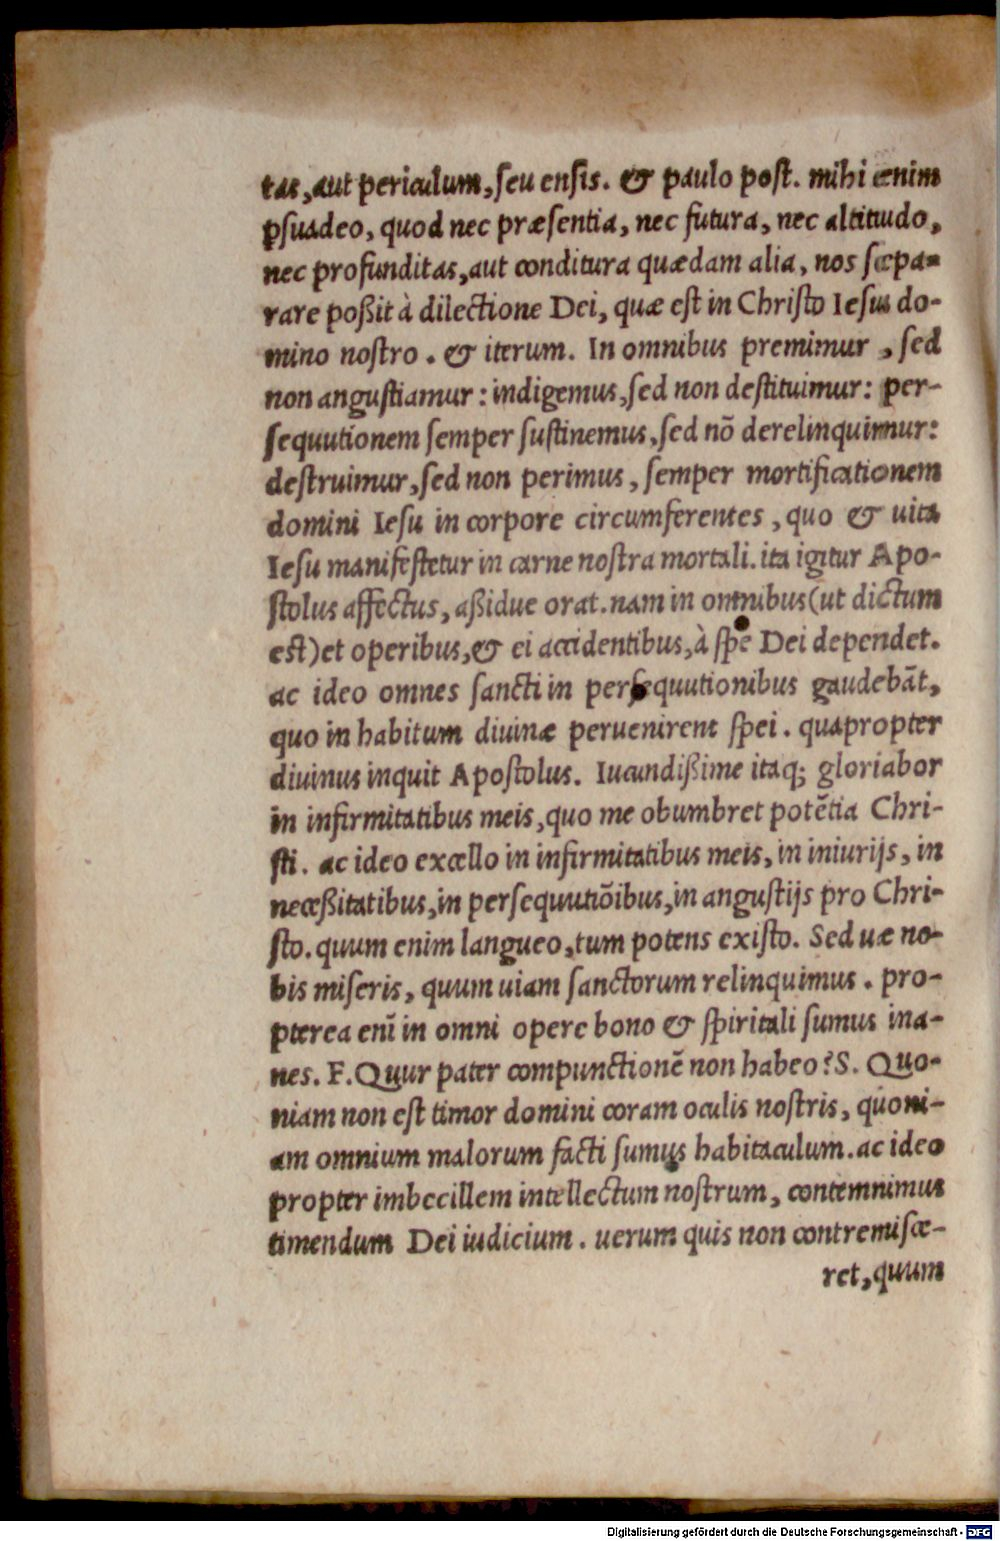 tas, aut periculum, seu ensis. & paulo post. mihi ænim
ꝑsuadeo, quod nec præsentia, nec futura, nec altitudo,
nec profunditas, aut conditura quædam alia, nos sæpa-
rare poßit à dilectione Dei, quæ est in Christo Iesu do-
mino nostro. & iterum. In omnibus premimur, sed
non angustiamur: indigemus, sed non destituimur: per-
sequutionem semper sustinemus, sed nõ derelinquimur:
destruimur, sed non perimus, semper mortificationem
domini Iesu in corpore circumferentes, quo & uita
Iesu manifestetur in carne nostra mortali. ita igitur Apo-
stolus affectus, aßidue orat. nam in omnibus (ut dictum
est) et operibus, & ei accidentibus, à spe Dei dependet.
ac ideo omnes sancti in persequutionibus gaudebãt,
quo in habitum diuinæ peruenirent spei. quapropter
diuinus inquit Apostolus. Iucundißime itaq; gloriabor
in infirmitatibus meis, quo me obumbret potẽtia Chri-
sti. ac ideo excello in infirmitatibus meis, in iniurijs, in
neceßitatibus, in persequutiõibus, in angustijs pro Chri-
sto. quum enim langueo, tum potens existo. Sed uæ no-
bis miseris, quum uiam sanctorum relinquimus. pro-
pterea enĩ in omni opere bono & spiritali sumus ina-
nes. F. Quur pater compunctionẽ non habeo? S. Quo-
niam non est timor domini coram oculis nostris, quoni-
am omnium malorum facti sumus habitaculum. ac ideo
propter imbecillem intellectum nostrum, contemnimus
timendum Dei iudicium. uerum quis non contremisce-
ret, quum
Digitalisierung gefördert durch die Deutsche Forschungsgemeinschaft - DFG